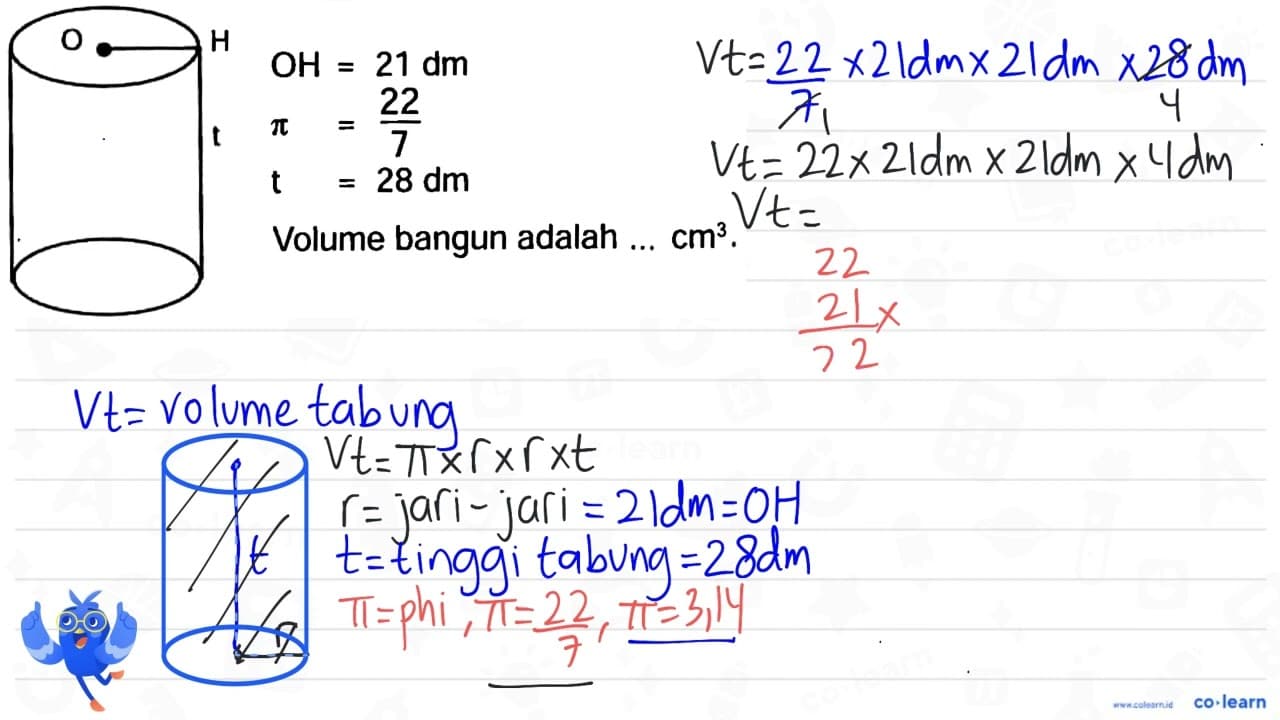 O H
OH = 21 dm
t π = 22/7
t = 28 dm
Volume bangun adalah ... cm³.
Vt = 22/7 x 21dm x 21dm x 28 dm
1 4
Vt = 22 x 21dm x 21dm x 4dm
Vt =
22
21 x
22
Vt = volume tabung
Vt = π x r x r x t
r = jari - jari = 21dm = OH
t
t = tinggi tabung = 28dm
π = phi, π = 22/7, π = 3,14
r
www.colearn.id co·learn